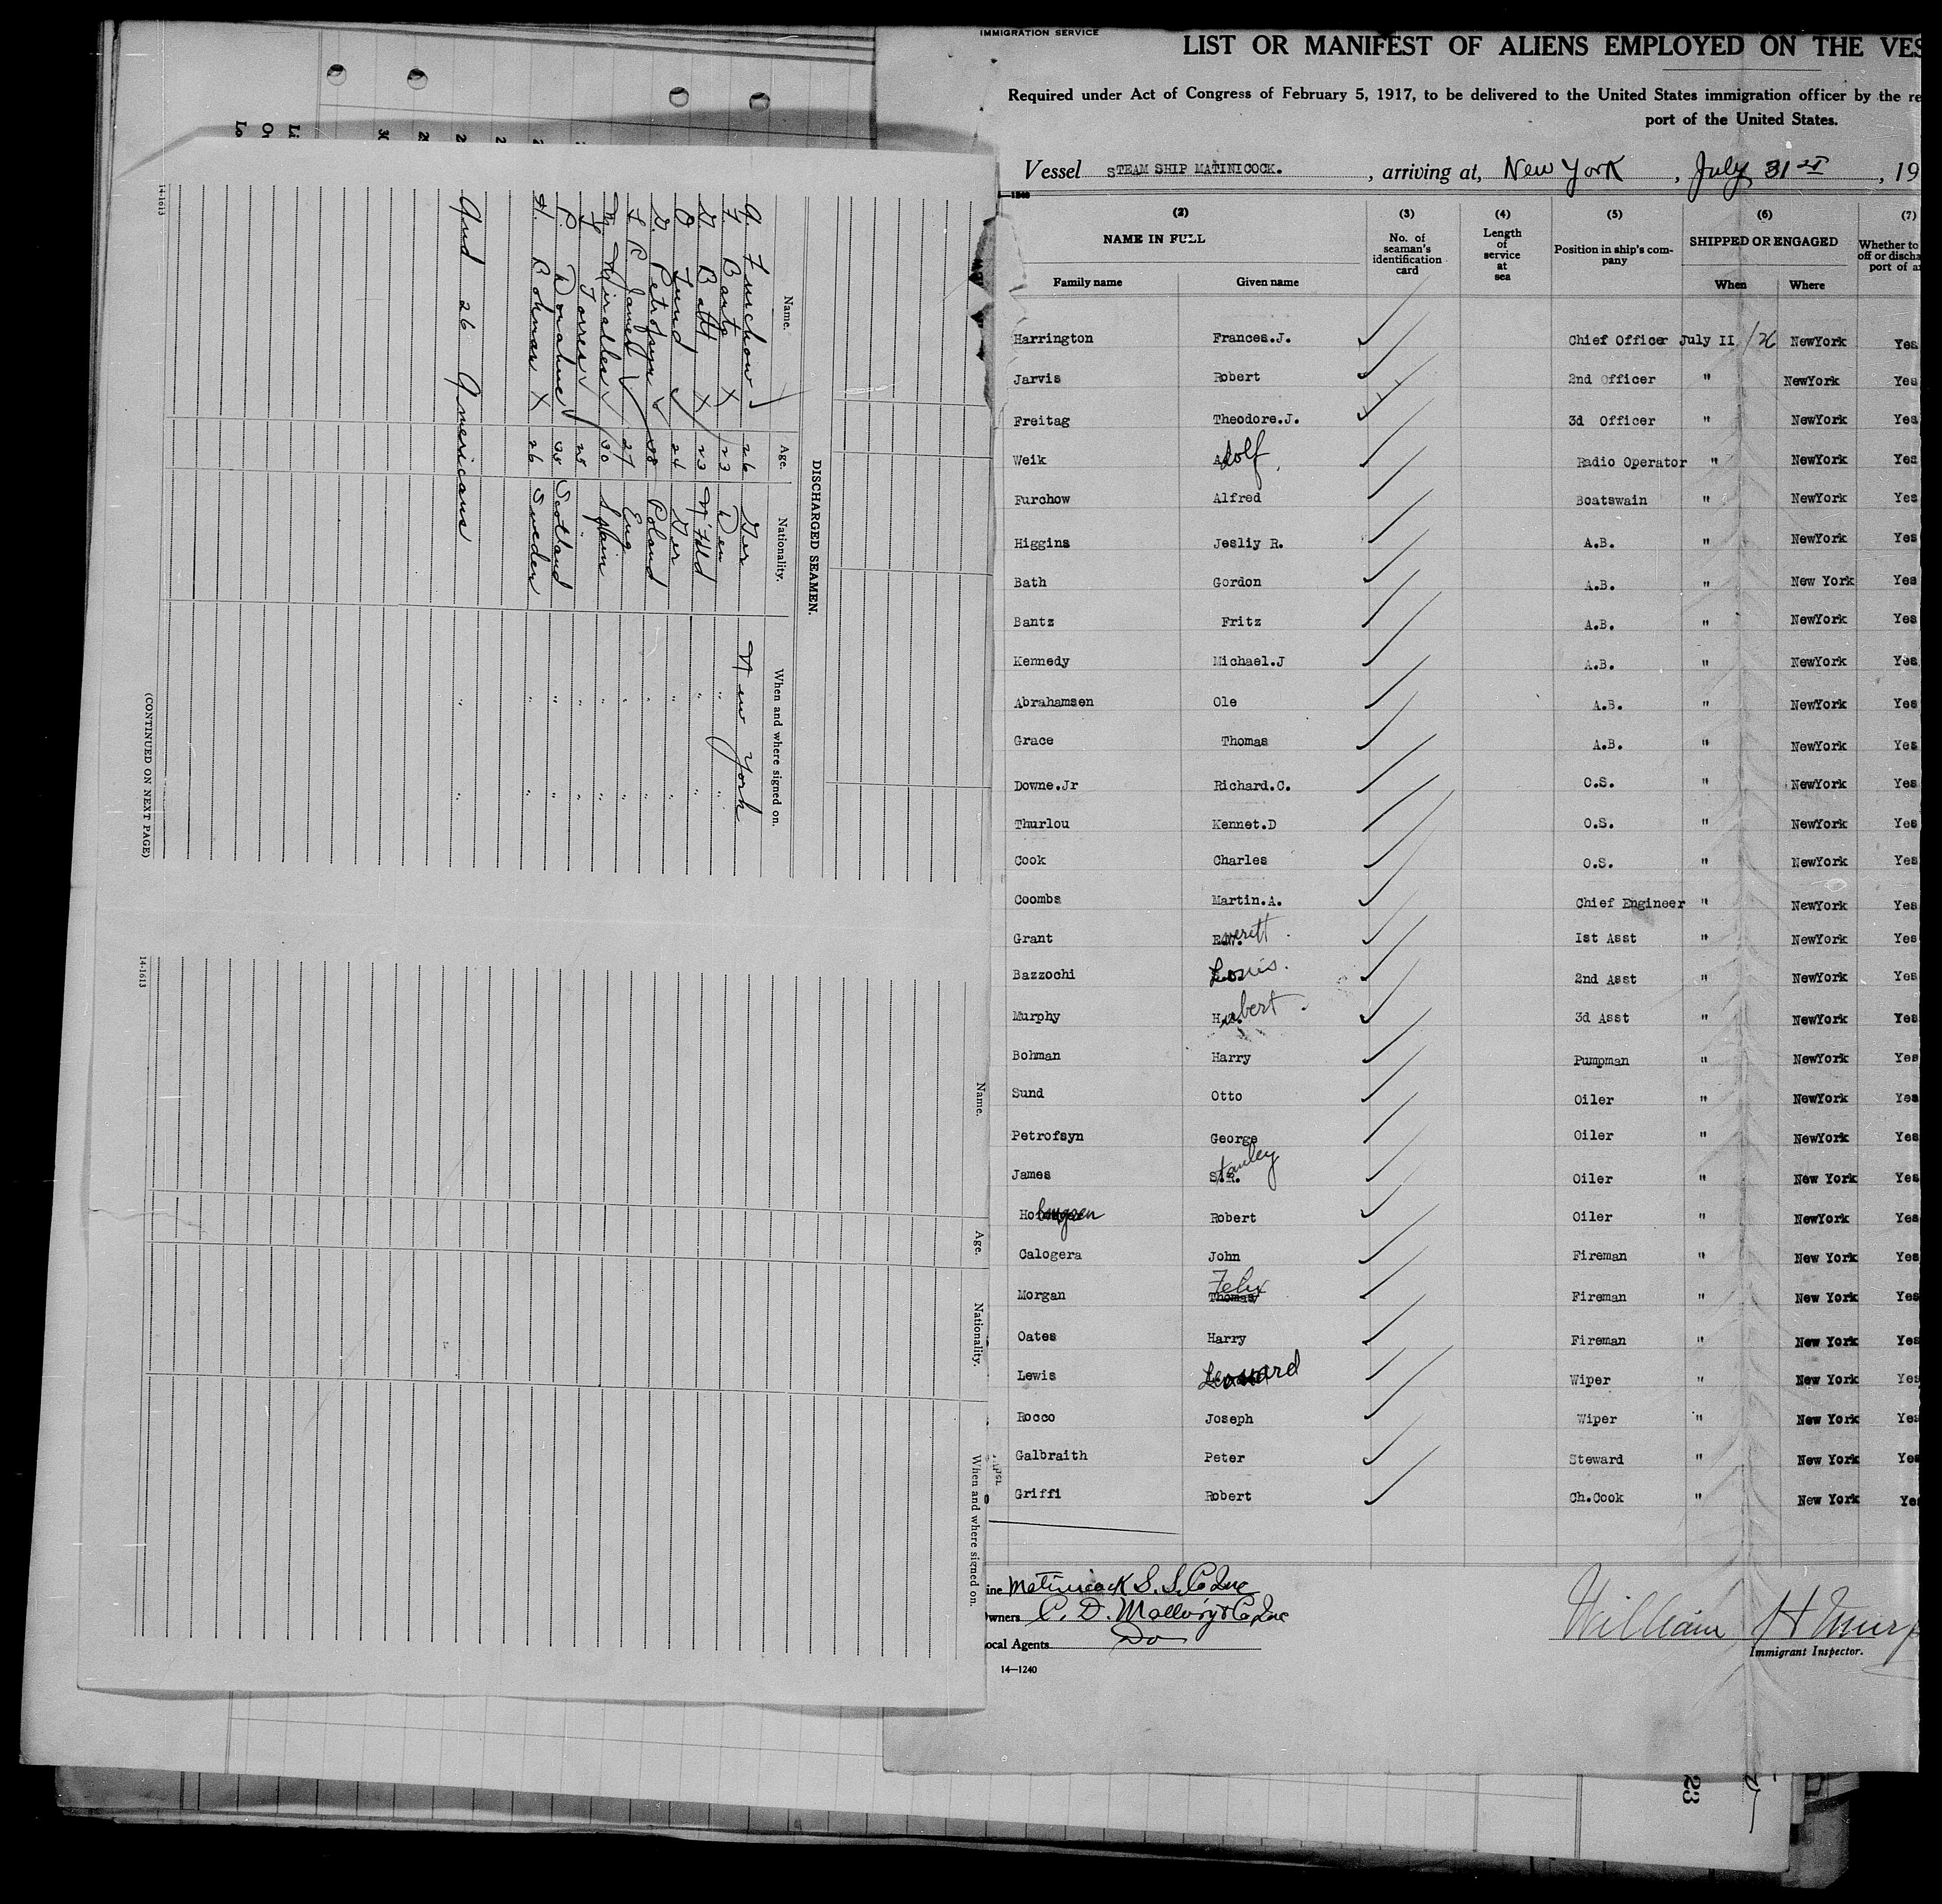 IMMIGRATION SERVICE
LIST OR MANIFEST OF ALIENS EMPLOYED ON THE VES
Required under Act of Congress of February 5, 1917, to be delivered to the United States immigration officer by the re
port of the United States.
Vessel STEAM SHIP MATINICOCK. , arriving at, New York , July 31st , 19
(2) (3) (4) (5) (6) (7)
NAME IN FULL No. of seaman's identification card Length of service at sea Position in ship's company SHIPPED OR ENGAGED Whether to off or discha port of a
Family name Given name When Where
Harrington Frances.J. Chief Officer July II /26 NewYork Yes
Jarvis Robert 2nd Officer " NewYork Yes
Freitag Theodore.J. 3d Officer " NewYork Yes
Weik Adolf Radio Operator " NewYork Yes
Furchow Alfred Boatswain " NewYork Yes
Higgins Jesliy R. A.B. " NewYork Yes
Bath Gordon A.B. " New York Yes
Bantz Fritz A.B. " NewYork Yes
Kennedy Michael.J A.B. " NewYork Yes
Abrahamsen Ole A.B. " NewYork Yes
Grace Thomas A.B. " NewYork Yes
Downe.Jr Richard.C. O.S. " NewYork Yes
Thurlou Kennet.D O.S. " NewYork Yes
Cook Charles O.S. " NewYork Yes
Coombs Martin.A. Chief Engineer " NewYork Yes
Grant Everett 1st Asst " NewYork Yes
Bazzochi Louis. 2nd Asst " NewYork Yes
Murphy Hubert 3d Asst " NewYork Yes
Bohman Harry Pumpman " NewYork Yes
Sund Otto Oiler " NewYork Yes
Petrofsyn George Oiler " NewYork Yes
James Stanley Oiler " New York Yes
Robert Oiler " NewYork Yes
Calogera John Fireman " New York Yes
Morgan Felix Thomas Fireman " New York Yes
Oates Harry Fireman " New York Yes
Lewis Leonard Wiper " New York Yes
Rocco Joseph Wiper " New York Yes
Galbraith Peter Steward " New York Yes
Griffi Robert Ch.Cook " New York Yes
ine Matinicock S.S. Co Inc
wners C. D. Mallory & Co Inc
ocal Agents Do
14—1240
William H Murp
Immigrant Inspector.
23
DISCHARGED SEAMEN.
Name. Age. Nationality. When and where signed on.
A. Furchow 26 Ger New York
F. Bantz X 23 Den " "
G. Batt X 23 N'Fld " "
O Sund 24 Ger " "
G. Petrofsyn 38 Poland " "
S. R James 27 Eng " "
M. Miralles 30 Spain " "
Torres 25 " " "
P. Donahue 35 Scotland " "
H. Bohman X 26 Sweden " "
And 26 Americans " "
(CONTINUED ON NEXT PAGE)
14-1613
Name. Age. Nationality. When and where signed on.
14-1613